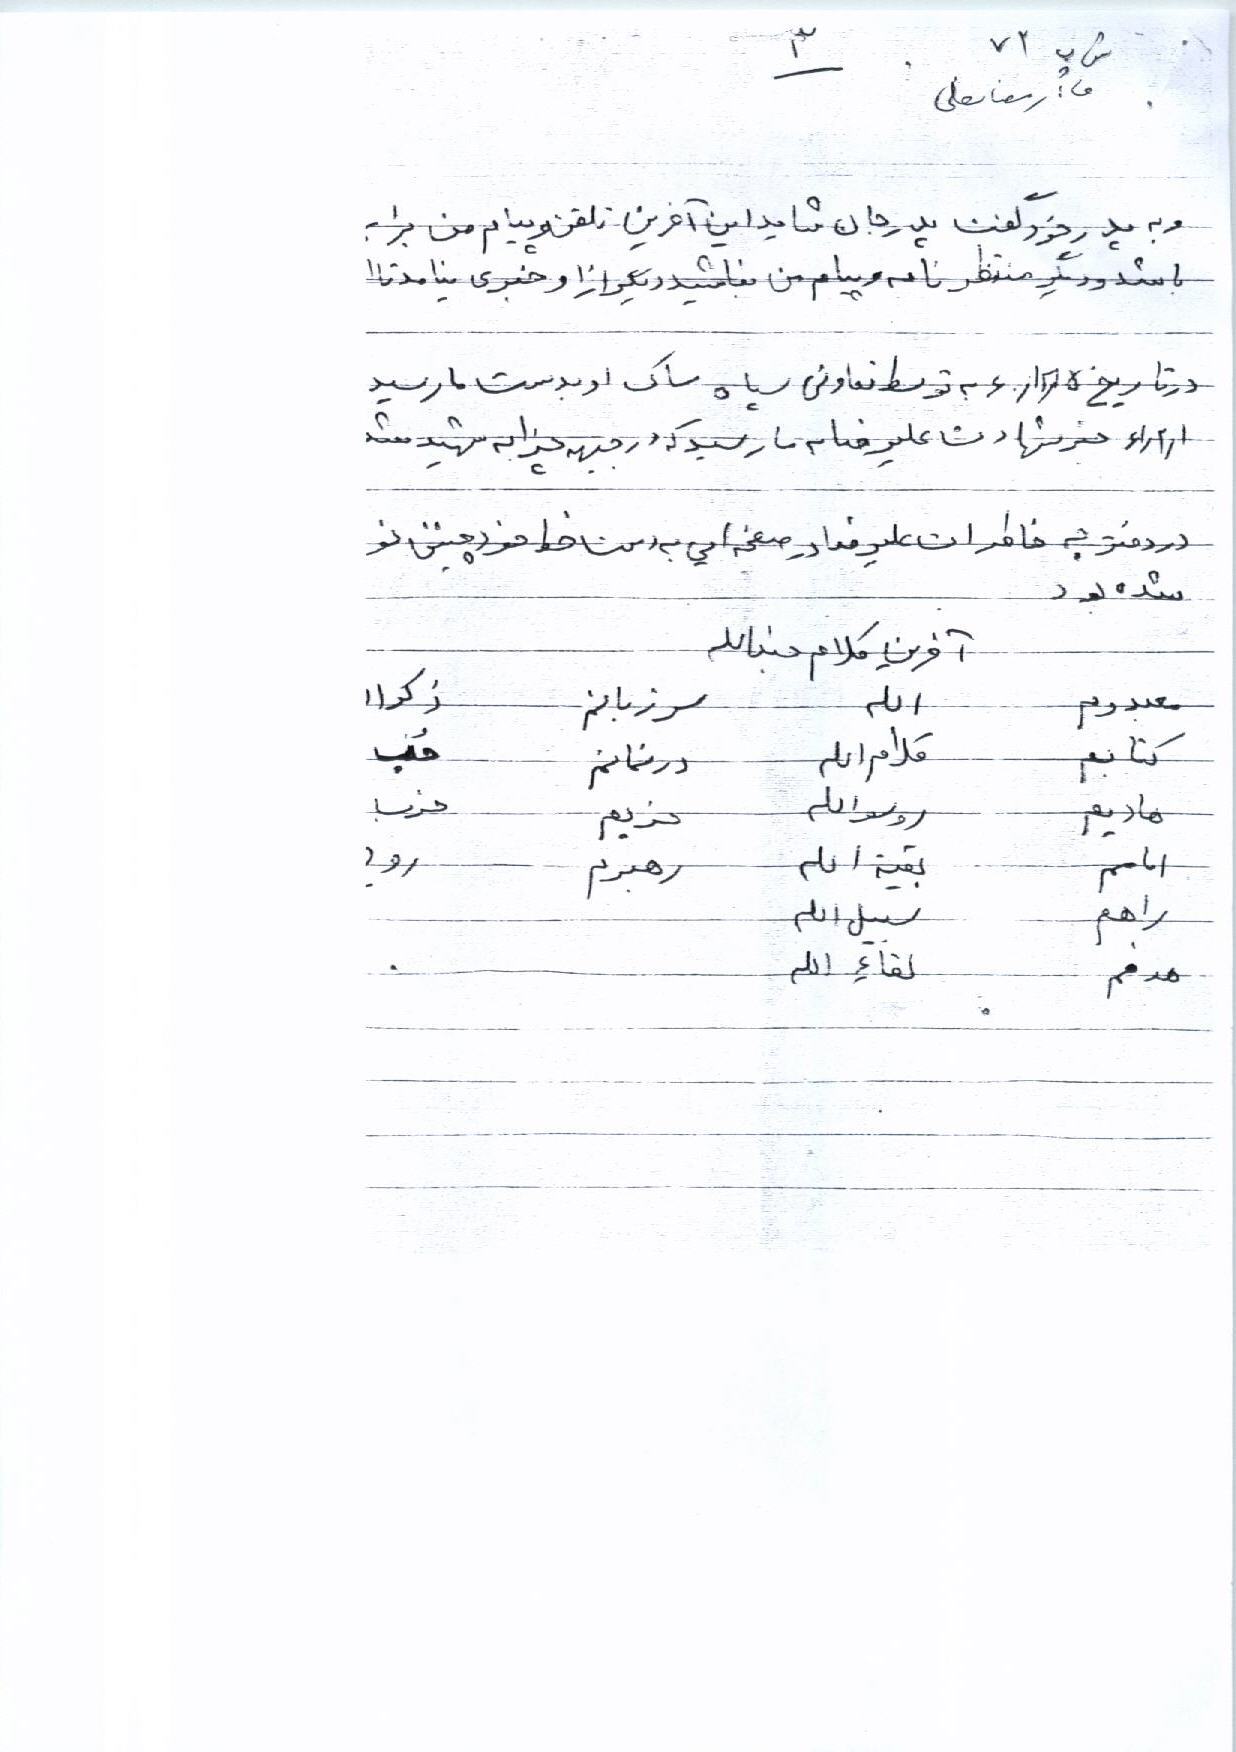 ۳
ش پ ۷۲
رمضانعلی
و به پدر خود گفت پدر جان شاید این آخرین تلفن و پیام من برای
باشد و دیگر منتظر نامه و پیام من نباشید دیگر از او خبری نیامد تا
در تاریخ توسط تعاونی سپاه ساک او بدست ما رسید
خبر شهادت علیرضا به ما رسید که در جبهه چزابه شهید شد
در دفترچه خاطرات علیرضا در صفحه ای به دست خط خود چنین نو
شده بود
آخرین کلام حزب‌الله
معبودم الله سر زبانم ذکر ا
کتابم کلام الله درمانم حُب
هادیم روح‌الله حزبم حزب
امامم بقیة الله رهبرم روح
راهم سبیل الله
هدفم لقاءِ الله